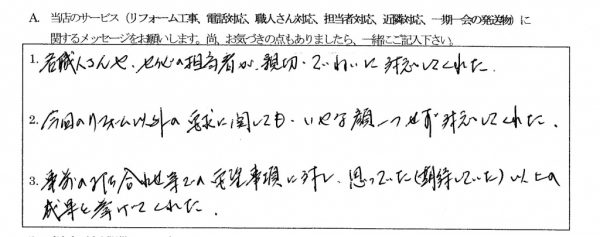 A. 当店のサービス（リフォーム工事、電話対応、職人さん対応、担当者対応、近隣対応、一期一会の発送物）に
関するメッセージをお願いします。尚、お気づきの点もありましたら、一緒にご記入下さい。
1. 各職人さんや、セイムの担当者が、親切・ていねいに対応してくれた。
2. 今回のリフォーム以外の要求に関しても、いやな顔一つせず対応してくれた。
3. 事前の打ち合わせ等での要望事項に対し、思っていた(期待していた)以上の
成果を挙げてくれた。